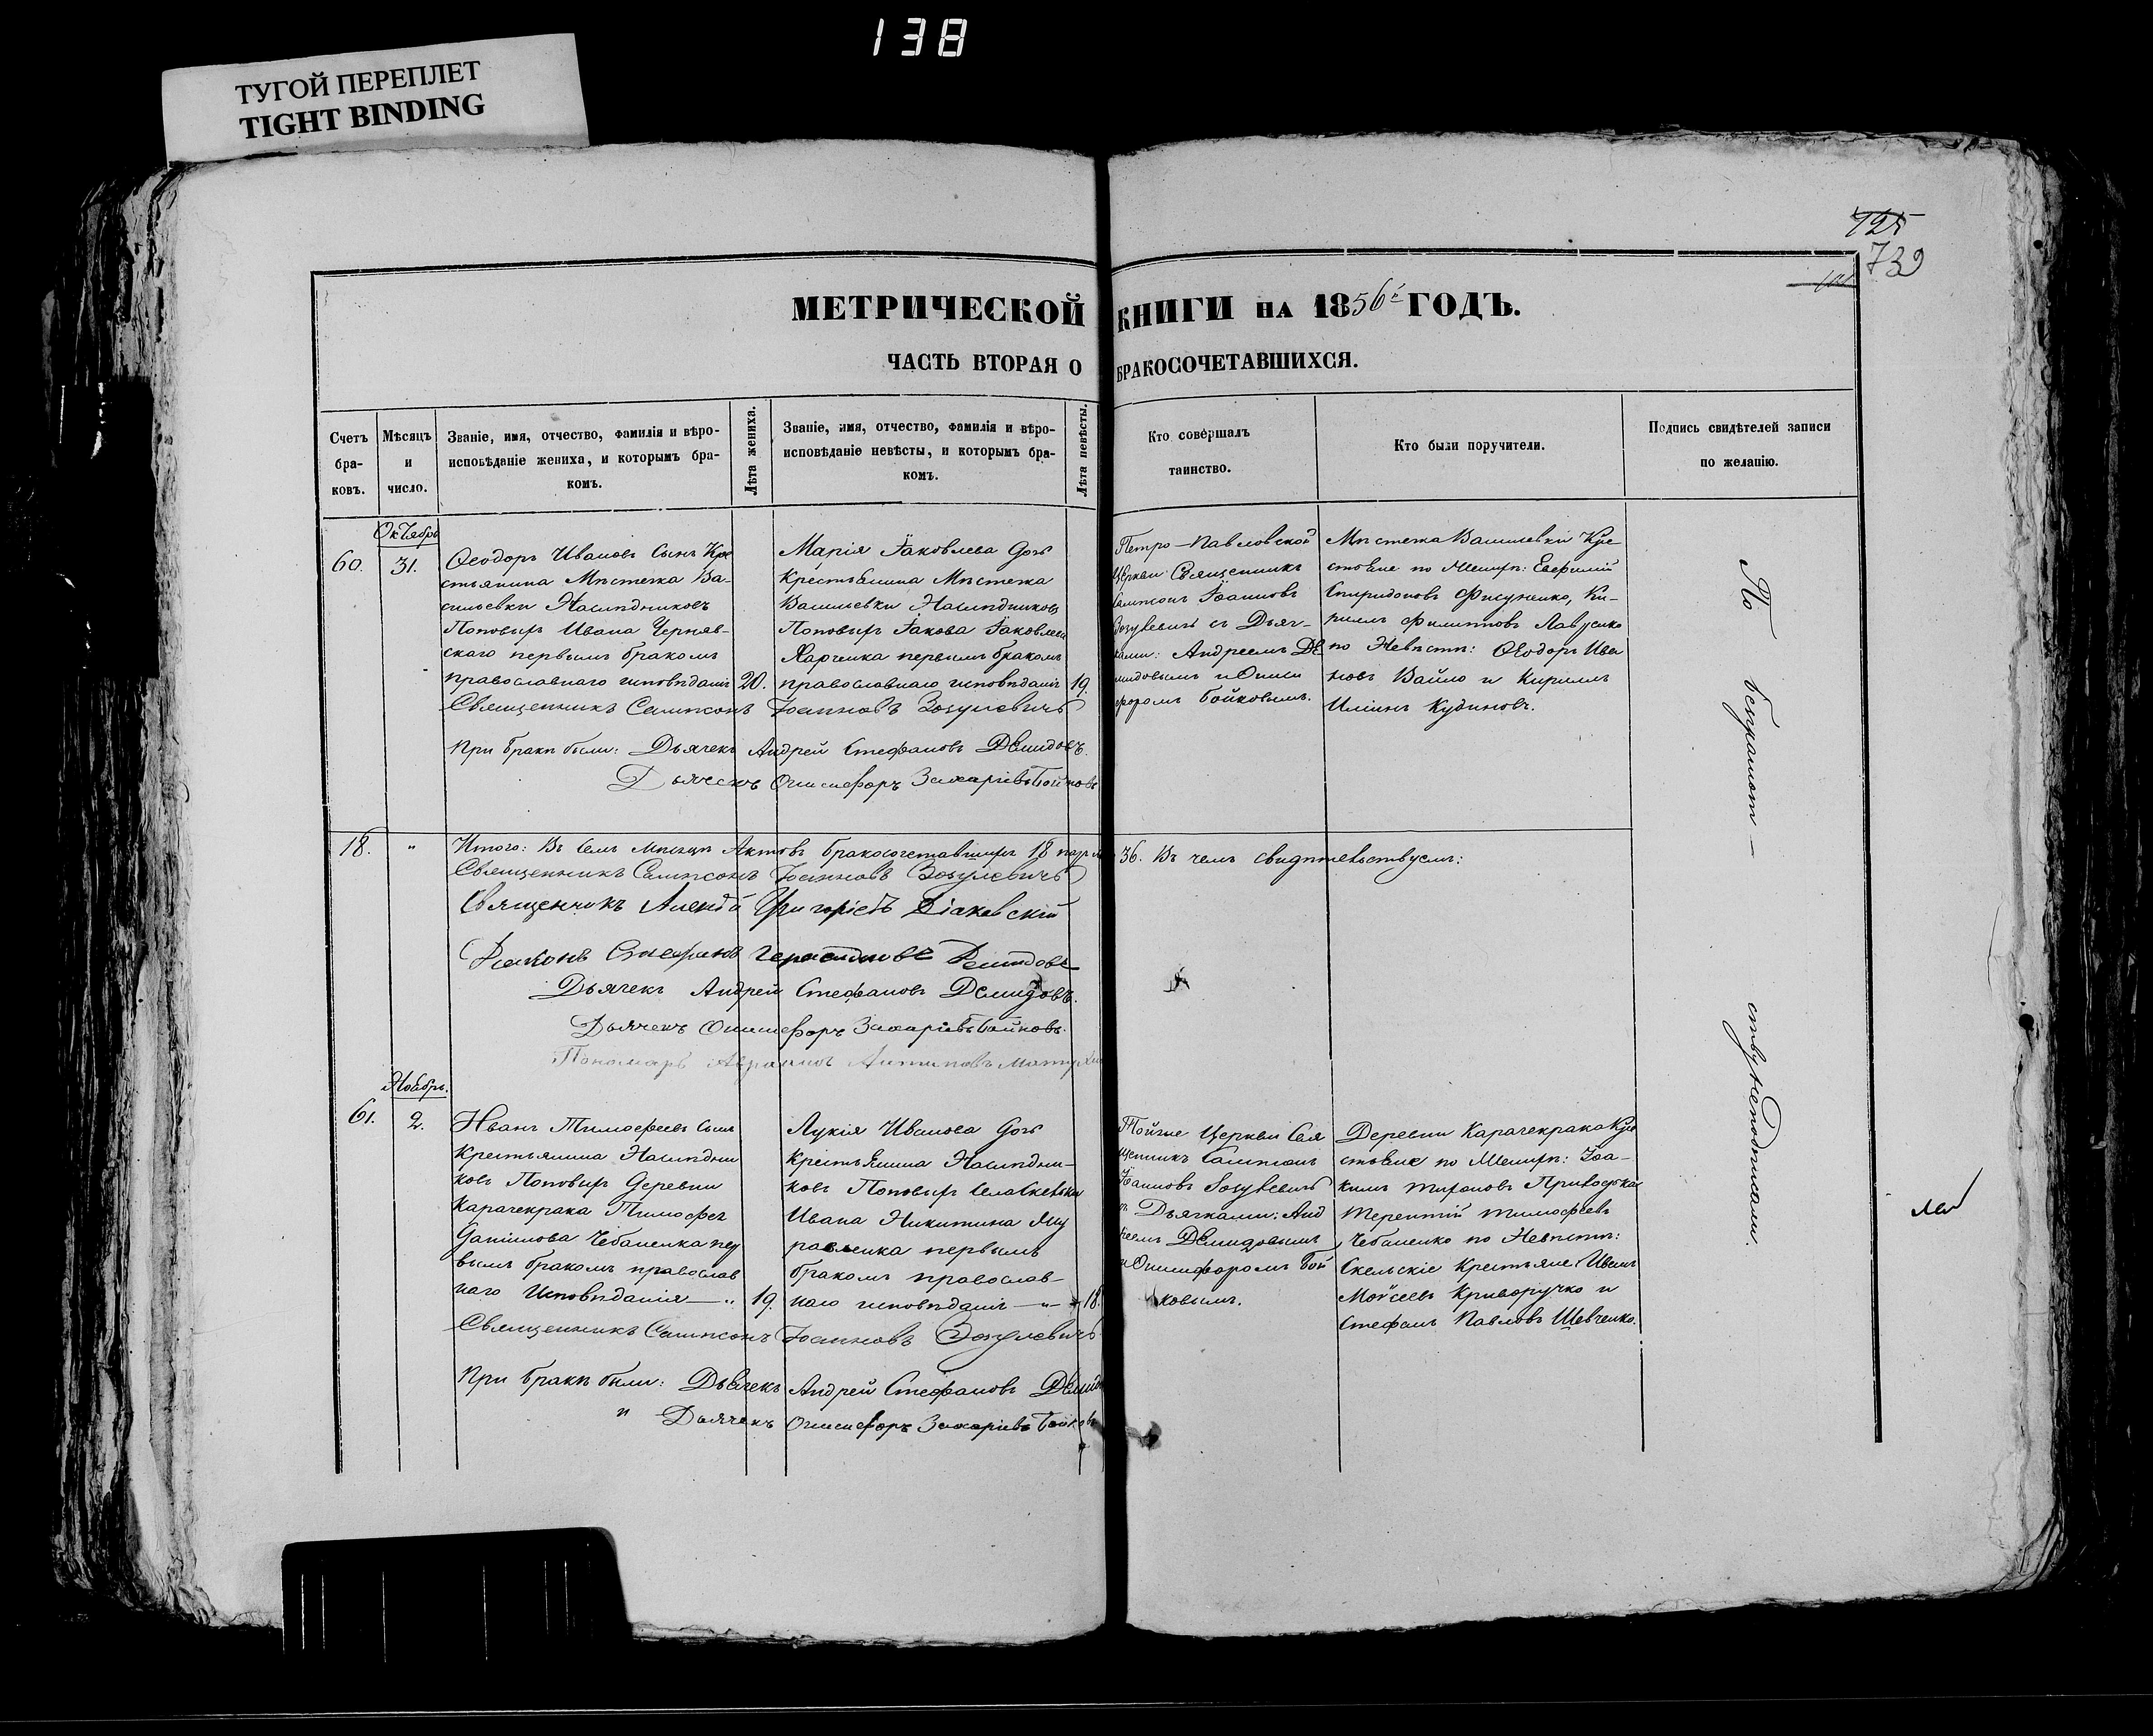 138
ТУГОЙ ПЕРЕПЛЕТ
TIGHT BINDING
725
739
МЕТРИЧЕСКОЙ КНИГИ НА 1856й ГОДЪ.
ЧАСТЬ ВТОРАЯ О БРАКОСОЧЕТАВШИХСЯ.
Счетъ бра-ковъ.
Мѣсяцъ и число.
Званіе, имя, отчество, фамилія и вѣро-
исповѣданіе жениха, и которымъ бра-
комъ.
Лѣта жениха.
Званіе, имя, отчество, фамилія и вѣро-
исповѣданіе невѣсты, и которымъ бра-
комъ.
Лѣта невѣсты.
Кто совершалъ
таинство.
Кто были поручители.
Подпись свидѣтелей записи
по желанію.
Октябрь
60.
31.
Ѳеодоръ Ивановъ сынъ Кре
стьянина Мѣстечка Ва-
сильевки Наслѣдниковъ
Поповыхъ Ивана Черняв-
скаго первымъ бракомъ
православнаго исповѣданія
20.
Марія Іаковлева дочь
Крестьянина Мѣстечка
Васильевки Наслѣдниковъ
Поповыхъ Іакова Іаковлева
Харченка первымъ бракомъ
православнаго исповѣданія
19.
Петро-Павловской
Церкви Священникъ
Сампсонъ Іоанновъ
Зозулевичъ съ Дьяч-
ками: Андреемъ Де
мидовымъ и Ониси
форомъ Бойковымъ.
Мѣстечка Васильевки Кре
стьяне по Женихѣ: Евфимій
Спиридоновъ Фисуненко, Ки-
риллъ Филипповъ
по Невѣстѣ: Ѳеодоръ Ива
новъ Вайло и Кириллъ
Ильинъ Кудиновъ.
Священникъ Сампсонъ Іоанновъ Зозулевичъ
При бракѣ были: Дьячекъ Андрей Стефановъ Демидовъ.
Дьячекъ Онисифоръ Захаріевъ Бойковъ
18.
"
Итого: Въ семъ мѣсяцѣ Актовъ бракосочетавшихъ 18 паръ 36. Въ чемъ свидѣтельствуемъ:
Священникъ Сампсонъ Іоанновъ Зозулевичъ
Священникъ Григорій Діаковскій
Діаконъ Стефанъ Демидовъ
Дьячекъ Андрей Стефановъ Демидовъ.
Дьячекъ Онисифоръ Захаріевъ Бойковъ.
Пономарь Авраамъ Антиповъ
Ноябрь.
61.
2.
Иванъ Тимофеевъ сынъ
Крестьянина Наслѣдни
ковъ Поповыхъ Деревни
Карачекрака Тимофея
Даніилова Чебаненка пер
вымъ бракомъ православ
наго Исповѣданія — "
19.
Лукія Иванова дочь
Крестьянина Наслѣдни-
ковъ Поповыхъ села Скельки
Ивана Никитина Жу
равленка первымъ
бракомъ православ-
наго исповѣданія — " —
18.
Тойже Церкви Свя
щенникъ Сампсонъ
Іоанновъ Зозулевичъ
съ Дьячками: Анд
реемъ Демидовымъ
и Онисифоромъ Бой
ковымъ.
Деревни Карачекрака Кре
стьяне по Женихѣ: Іоа-
кимъ
Терентій Тимофеевъ
Чебаненко по Невѣстѣ:
Скельскіе Крестьяне: Иванъ
Моисеевъ Криворучко и
Стефанъ Павловъ Шевченко.
Священникъ Сампсонъ Іоанновъ Зозулевичъ
При бракѣ были: Дьячекъ Андрей Стефановъ Демидо
и Дьячекъ Онисифоръ Захаріевъ Бойковъ
По безграмот-
ству неподписали.